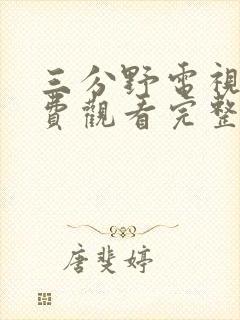 三分野電視
費觀看完整
唐斐婷